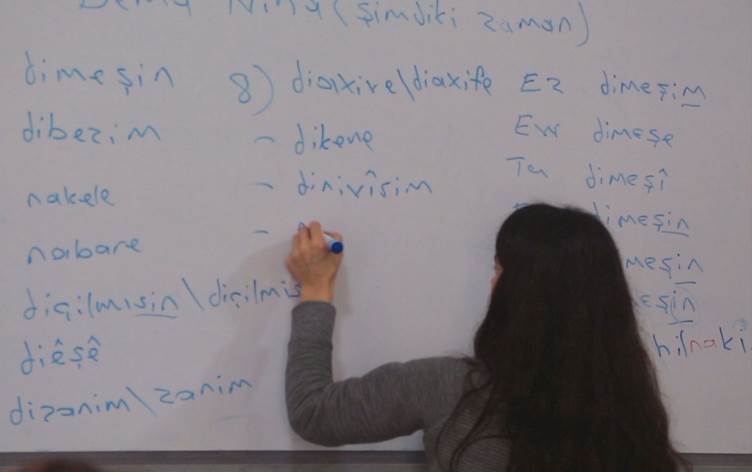 Dema Niha (şimdiki zaman)
dimeşin
dibezim
nakele
nabare
diçilmısin \ diçilmis
diêşê
dizanim \ zanim
8) diaxive \ diaxife
- dikene
- dinivîsim
-
Ez dimeşim
Ew dimeşe
Tu dimeşî
dimeşin
meşin
eşin
hilnaki